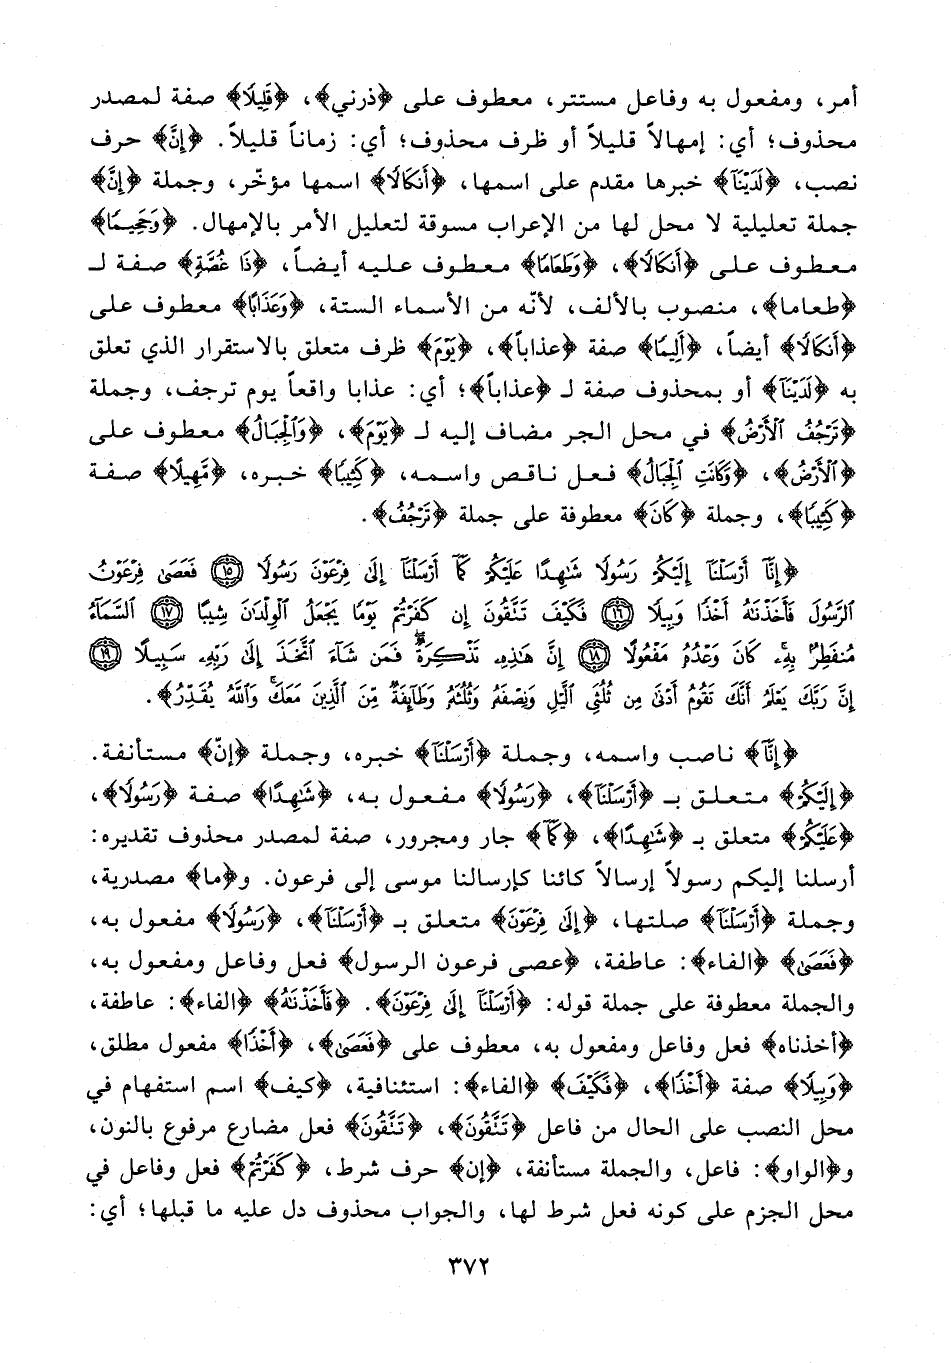 أمر، ومفعول به وفاعل مستتر، معطوف على ﴿ذرني﴾، ﴿قَلِيلًا﴾ صفة لمصدر
محذوف؛ أي: إمهالاً قليلاً أو ظرف محذوف؛ أي: زماناً قليلاً. ﴿إِنَّ﴾ حرف
نصب، ﴿لَدَيْنَآ﴾ خبرها مقدم على اسمها، ﴿أَنكَالًا﴾ اسمها مؤخّر، وجملة ﴿إِنَّ﴾
جملة تعليلية لا محل لها من الإعراب مسوقة لتعليل الأمر بالإمهال. ﴿وَجَحِيمًا﴾
معطوف على ﴿أَنكَالًا﴾، ﴿وَطَعَامًا﴾ معطوف عليه أيضاً، ﴿ذَا غُصَّةٍ﴾ صفة لـ
﴿طعاما﴾، منصوب بالألف، لأنّه من الأسماء الستة، ﴿وَعَذَابًا﴾ معطوف على
﴿أَنكَالًا﴾ أيضاً، ﴿أَلِيمًا﴾ صفة ﴿عذاباً﴾، ﴿يَوْمَ﴾ ظرف متعلق بالاستقرار الذي تعلق
به ﴿لَدَيْنَآ﴾ أو بمحذوف صفة لـ ﴿عذاباً﴾؛ أي: عذابا واقعاً يوم ترجف، وجملة
﴿تَرْجُفُ ٱلْأَرْضُ﴾ في محل الجر مضاف إليه لـ ﴿يَوْمَ﴾، ﴿وَٱلْجِبَالُ﴾ معطوف على
﴿ٱلْأَرْضُ﴾، ﴿وَكَانَتِ ٱلْجِبَالُ﴾ فعل ناقص واسمه، ﴿كَثِيبًا﴾ خبره، ﴿مَّهِيلًا﴾ صفة
﴿كَثِيبًا﴾، وجملة ﴿كَانَ﴾ معطوفة على جملة ﴿تَرْجُفُ﴾.
﴿إِنَّآ أَرْسَلْنَآ إِلَيْكُمْ رَسُولًا شَٰهِدًا عَلَيْكُمْ كَمَآ أَرْسَلْنَآ إِلَىٰ فِرْعَوْنَ رَسُولًا ١٥ فَعَصَىٰ فِرْعَوْنُ
ٱلرَّسُولَ فَأَخَذْنَٰهُ أَخْذًا وَبِيلًا ١٦ فَكَيْفَ تَتَّقُونَ إِن كَفَرْتُمْ يَوْمًا يَجْعَلُ ٱلْوِلْدَٰنَ شِيبًا ١٧ ٱلسَّمَآءُ
مُنفَطِرٌۢ بِهِۦ كَانَ وَعْدُهُۥ مَفْعُولًا ١٨ إِنَّ هَٰذِهِۦ تَذْكِرَةٌ فَمَن شَآءَ ٱتَّخَذَ إِلَىٰ رَبِّهِۦ سَبِيلًا ١٩
إِنَّ رَبَّكَ يَعْلَمُ أَنَّكَ تَقُومُ أَدْنَىٰ مِن ثُلُثَيِ ٱلَّيْلِ وَنِصْفَهُۥ وَثُلُثَهُۥ وَطَآئِفَةٌ مِّنَ ٱلَّذِينَ مَعَكَ وَٱللَّهُ يُقَدِّرُ﴾.
﴿إِنَّآ﴾ ناصب واسمه، وجملة ﴿أَرْسَلْنَآ﴾ خبره، وجملة ﴿إنّ﴾ مستأنفة.
﴿إِلَيْكُمْ﴾ متعلق بـ ﴿أَرْسَلْنَآ﴾، ﴿رَسُولًا﴾ مفعول به، ﴿شَٰهِدًا﴾ صفة ﴿رَسُولًا﴾،
﴿عَلَيْكُمْ﴾ متعلق بـ ﴿شَٰهِدًا﴾، ﴿كَمَآ﴾ جار ومجرور، صفة لمصدر محذوف تقديره:
أرسلنا إليكم رسولاً إرسالاً كائنا كإرسالنا موسى إلى فرعون. و﴿ما﴾ مصدرية،
وجملة ﴿أَرْسَلْنَآ﴾ صلتها، ﴿إِلَىٰ فِرْعَوْنَ﴾ متعلق بـ ﴿أَرْسَلْنَآ﴾، ﴿رَسُولًا﴾ مفعول به،
﴿فَعَصَىٰ﴾ ﴿الفاء﴾: عاطفة، ﴿عصى فرعون الرسول﴾ فعل وفاعل ومفعول به،
والجملة معطوفة على جملة قوله: ﴿أَرْسَلْنَآ إِلَىٰ فِرْعَوْنَ﴾. ﴿فَأَخَذْنَٰهُ﴾ ﴿الفاء﴾: عاطفة،
﴿أخذناه﴾ فعل وفاعل ومفعول به، معطوف على ﴿فَعَصَىٰ﴾، ﴿أَخْذًا﴾ مفعول مطلق،
﴿وَبِيلًا﴾ صفة ﴿أَخْذًا﴾، ﴿فَكَيْفَ﴾ ﴿الفاء﴾: استئنافية، ﴿كيف﴾ اسم استفهام في
محل النصب على الحال من فاعل ﴿تَتَّقُونَ﴾، ﴿تَتَّقُونَ﴾ فعل مضارع مرفوع بالنون،
و﴿الواو﴾: فاعل، والجملة مستأنفة، ﴿إن﴾ حرف شرط، ﴿كَفَرْتُمْ﴾ فعل وفاعل في
محل الجزم على كونه فعل شرط لها، والجواب محذوف دل عليه ما قبلها؛ أي:
٣٧٢